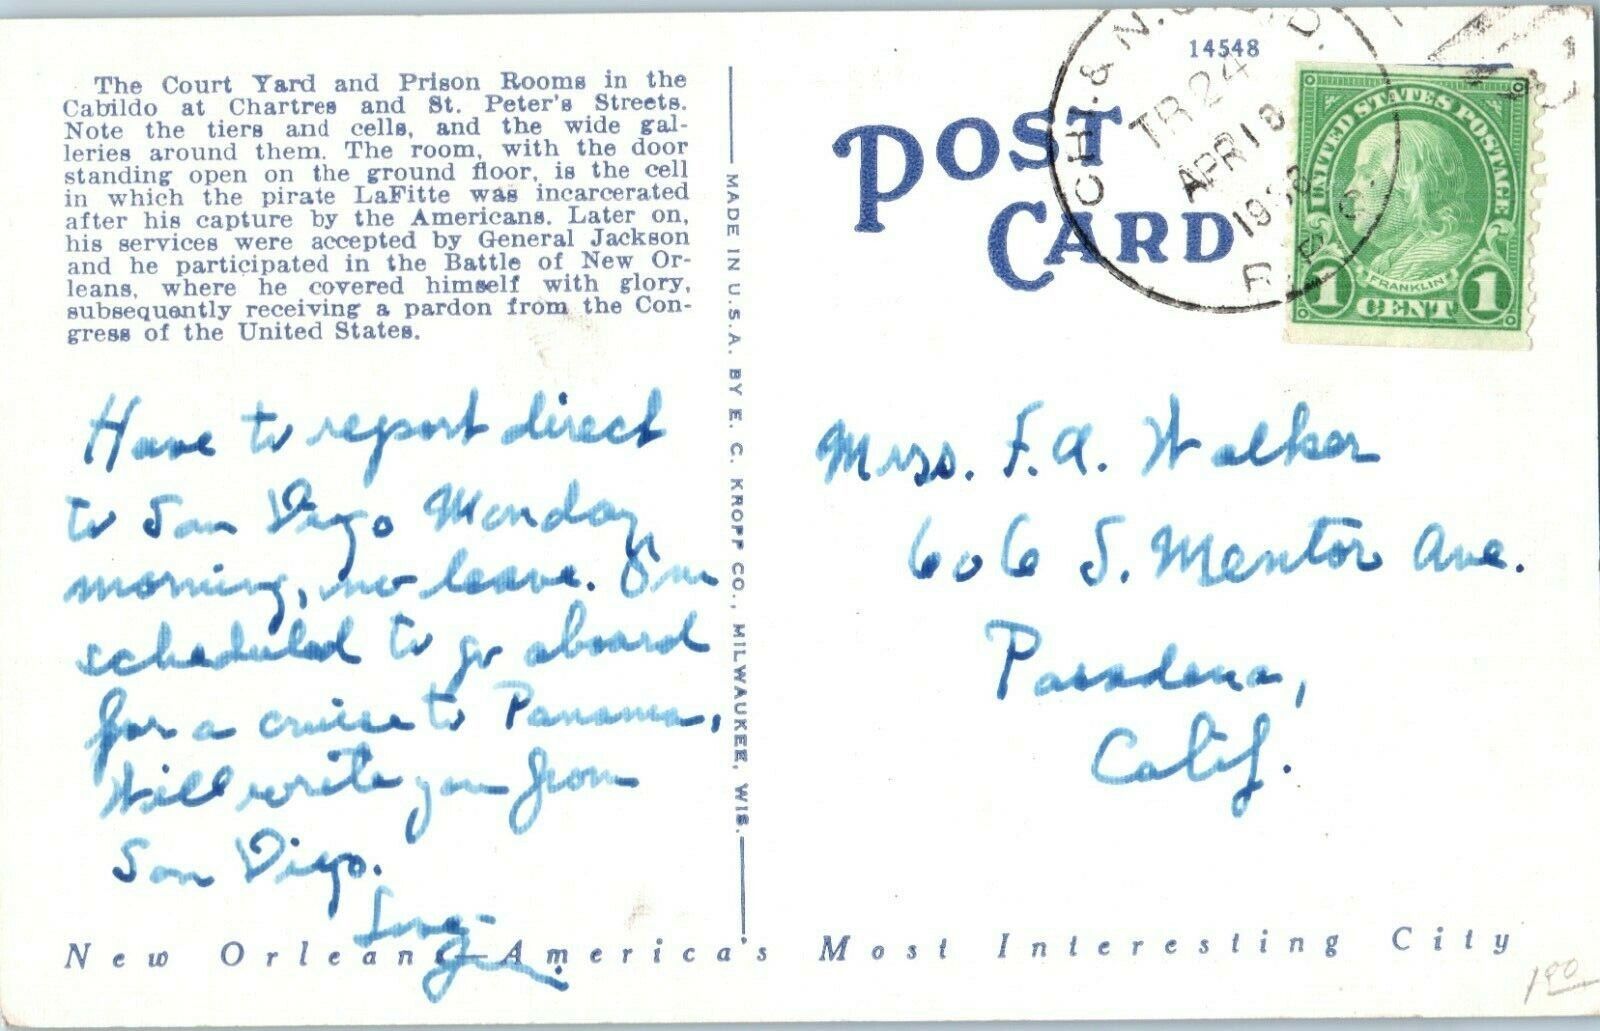 The Court Yard and Prison Rooms in the
Cabildo at Chartres and St. Peter's Streets.
Note the tiers and cells, and the wide gal-
leries around them. The room, with the door
standing open on the ground floor, is the cell
in which the pirate LaFitte was incarcerated
after his capture by the Americans. Later on,
his services were accepted by General Jackson
and he participated in the Battle of New Or-
leans, where he covered himself with glory,
subsequently receiving a pardon from the Con-
gress of the United States.
Have to report direct
to San Diego Monday
morning, no leave. I'm
scheduled to go aboard
for a cruise to Panama.
Will write you from
San Diego.
Love
MADE IN U.S.A. BY E. C. KROPP CO., MILWAUKEE, WIS.
14548
POST
CARD
CHI. & N.
TR 24
APR 18
R.P.O.
UNITED STATES POSTAGE
FRANKLIN
1 CENT 1
Mrs. F. A. Walker
606 S. Mentor Ave.
Pasadena,
Calif.
New Orleans—America's Most Interesting City
1.00